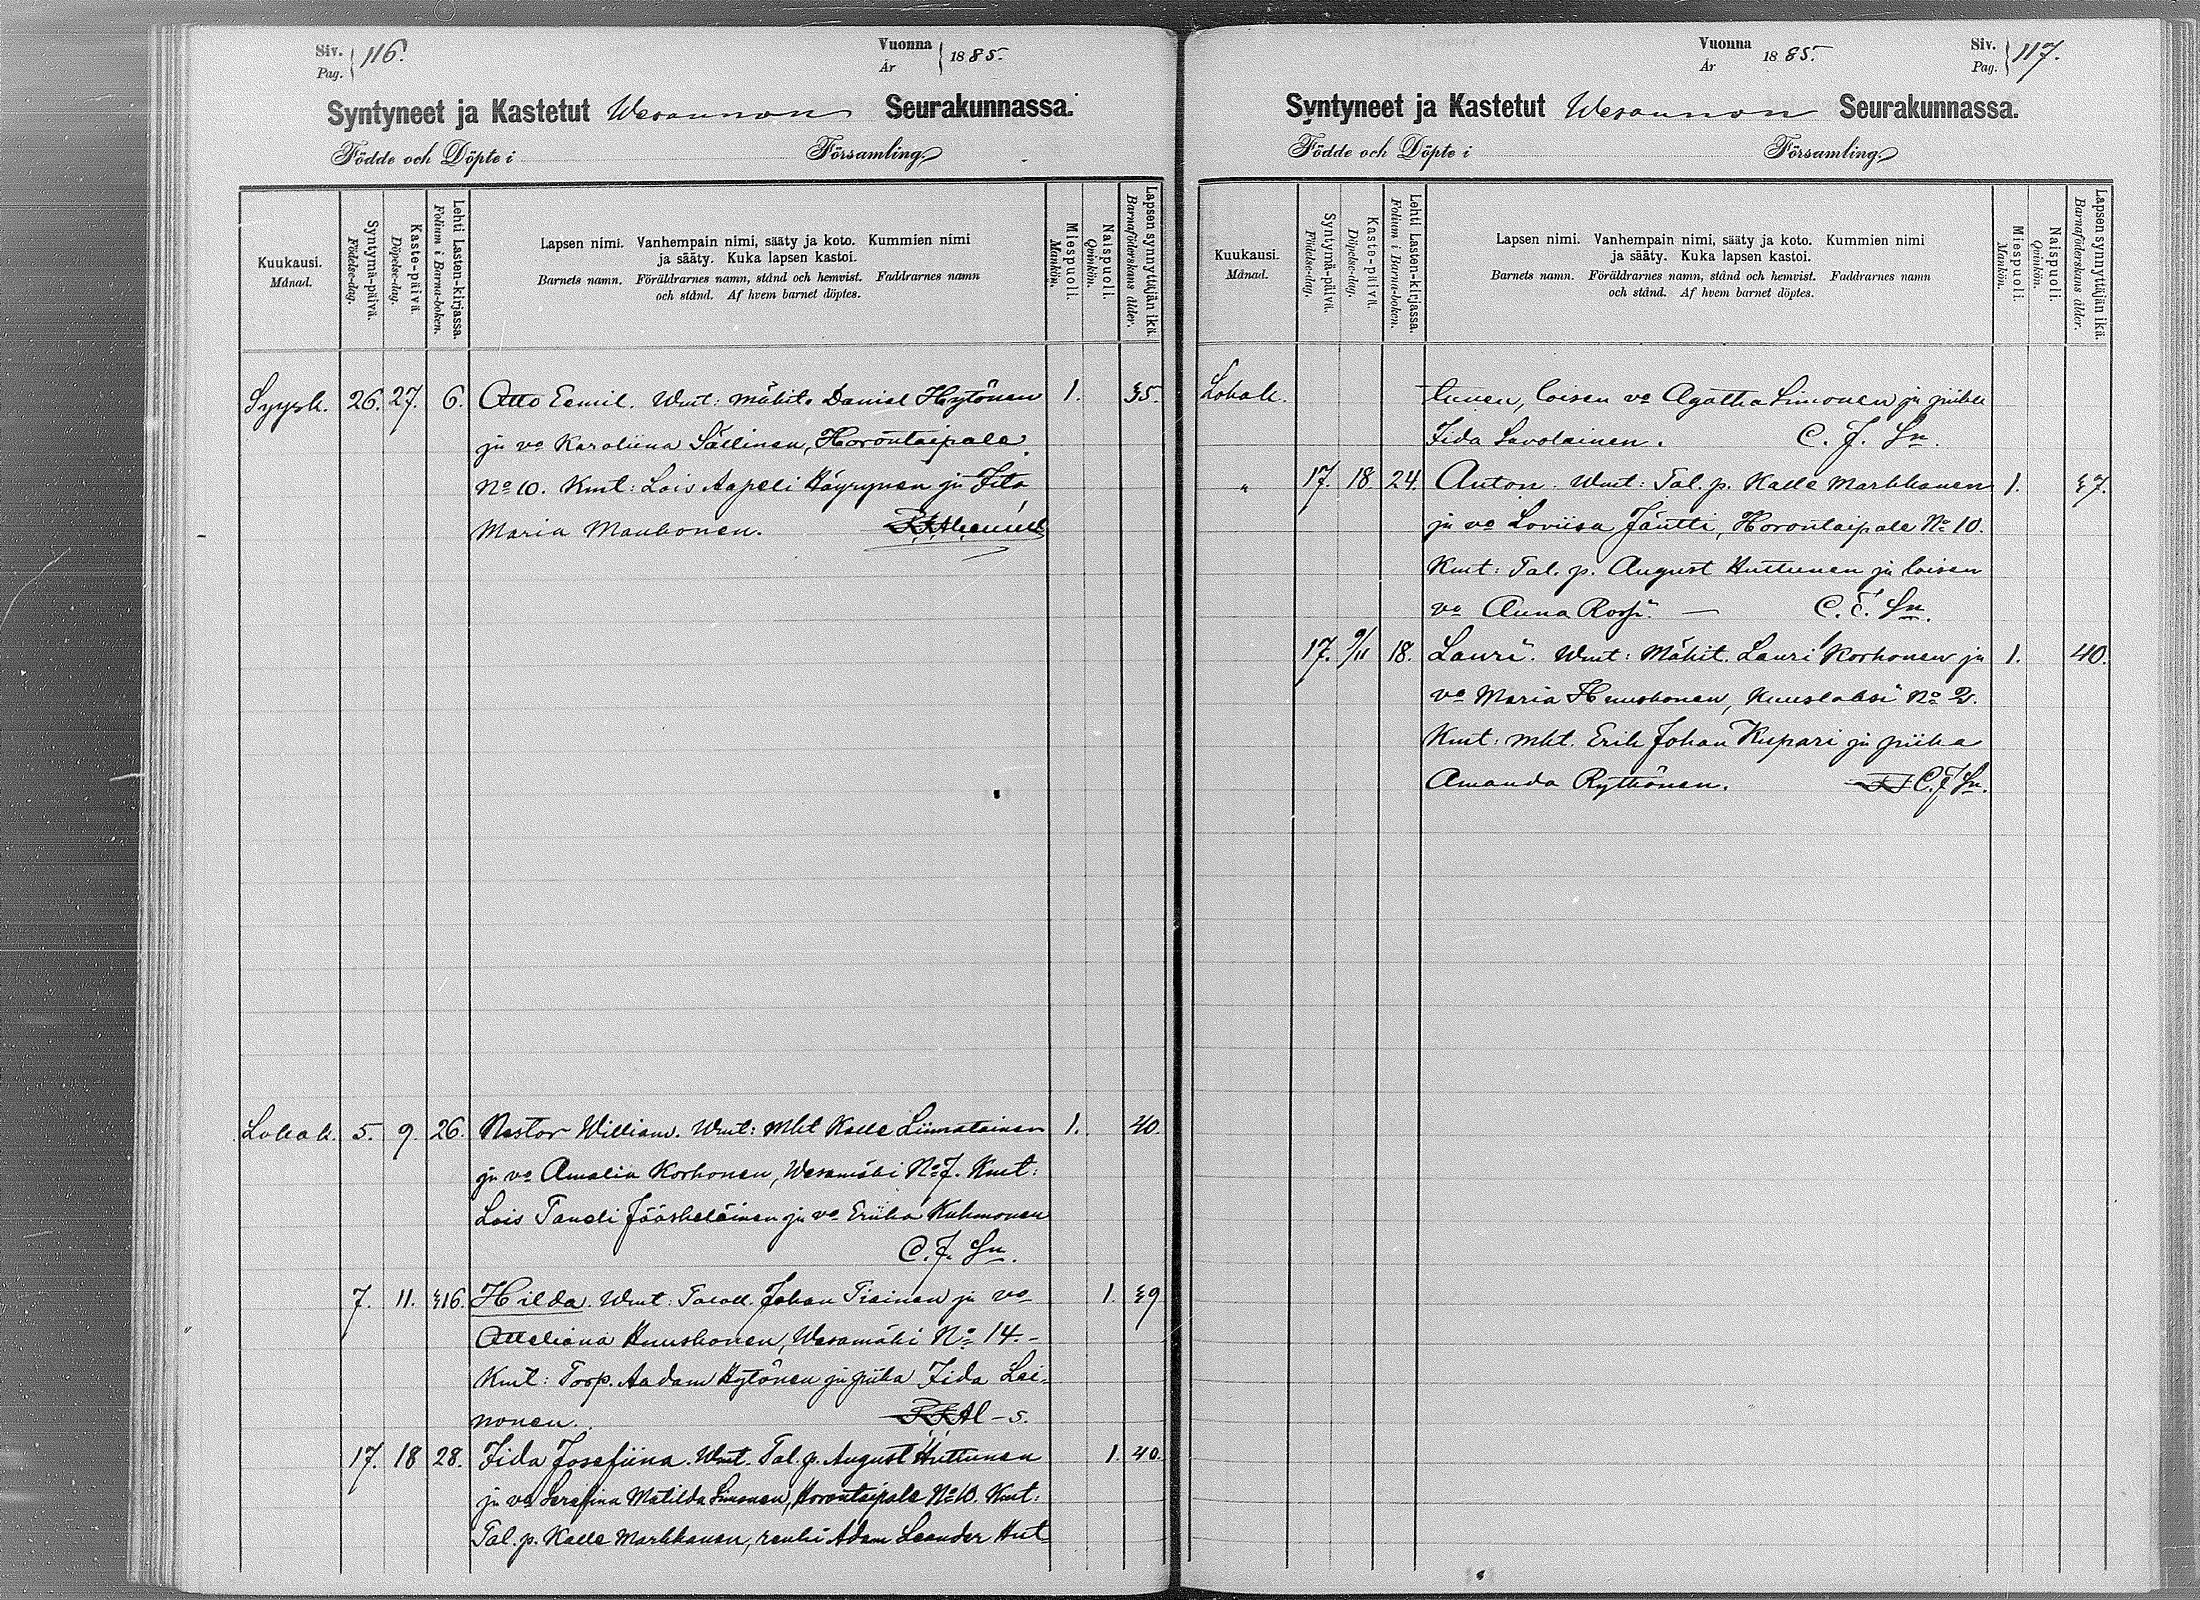 Siv. Pag. 116.
Vuonna År 1885.
Syntyneet ja Kastetut Wesannon Seurakunnassa.
Födde och Döpte i Församling
Kuukausi. Månad.
Syntymä-päivä. Födelse-dag.
Kaste-päivä. Döpelse-dag.
Lehti Lasten-kirjassa. Folium i Barna-boken.
Lapsen nimi. Vanhempain nimi, sääty ja koto. Kummien nimi
ja sääty. Kuka lapsen kastoi.
Barnets namn. Föräldrarnes namn, stånd och hemvist. Faddrarnes namn
och stånd. Af hvem barnet döptes.
Miespuoli. Mankön.
Naispuoli. Qvinkön.
Lapsen synnyttäjän ikä. Barnaföderskans ålder.
Syysk. 26. 27. 6. Otto Eemil. Wmt: mäkit. Daniel Hytönen 1. 35.
ja vo Karoliina Sällinen, Horontaipale
No 10. Kmt: Lois Aapeli Häyrynen ja Iita
Maria Mankonen.
Lokak. 5. 9. 26. Nestor William. Wmt: Mkt Kalle Liimatainen 1. 40.
ja vo Amalia Korhonen, Wesamäki No 7. Kmt:
Lois Taneli Jääskeläinen ja vo Eriika Kuhmonen
C. J. Sn.
7. 11. 316. Hilda. Wmt: Taloll. Johan Tiainen ja vo 1. 39
Huuskonen, Wesamäki No 14. -
Kmt: Torp. Aadam Hytönen ja piika Iida Lei-
nonen.
17. 18 28. Iida Josefiina. Wmt. Tal. p. August Huttunen 1. 40.
ja vo Serafina Matilda Simonen, Horontaipale No 10. Kmt:
Tal. p. Kalle Markkanen, renki Adam Leander Hut-
Vuonna År 1885.
Siv. Pag. 117.
Syntyneet ja Kastetut Wesannon Seurakunnassa.
Födde och Döpte i Församling
Kuukausi. Månad.
Syntymä-päivä. Födelse-dag.
Kaste-päivä. Döpelse-dag.
Lehti Lasten-kirjassa. Folium i Barna-boken.
Lapsen nimi. Vanhempain nimi, sääty ja koto. Kummien nimi
ja sääty. Kuka lapsen kastoi.
Barnets namn. Föräldrarnes namn, stånd och hemvist. Faddrarnes namn
och stånd. Af hvem barnet döptes.
Miespuoli. Mankön.
Naispuoli. Qvinkön.
Lapsen synnyttäjän ikä. Barnaföderskans ålder.
Lokak. tunen, loisen vo Agatha Simonen ja piika
Iida Savolainen. C. J. Sn.
" 17. 18. 24. Anton. Wmt: Tal. p. Kalle Markkanen 1. 37.
ja vo Loviisa Jäntti, Horontaipale No 10.
Kmt: Tal. p. August Huttunen ja loisen
vo Anna Rossi. — C. J. Sn.
17. 9/11 18. Lauri. Wmt: Mäkit. Lauri Korhonen ja 1. 40.
vo Maria Huuskonen, Kuuslaksi No 2.
Kmt: mkt. Erik Johan Kupari ja piika
Amanda Rytkönen. C. J. Sn.